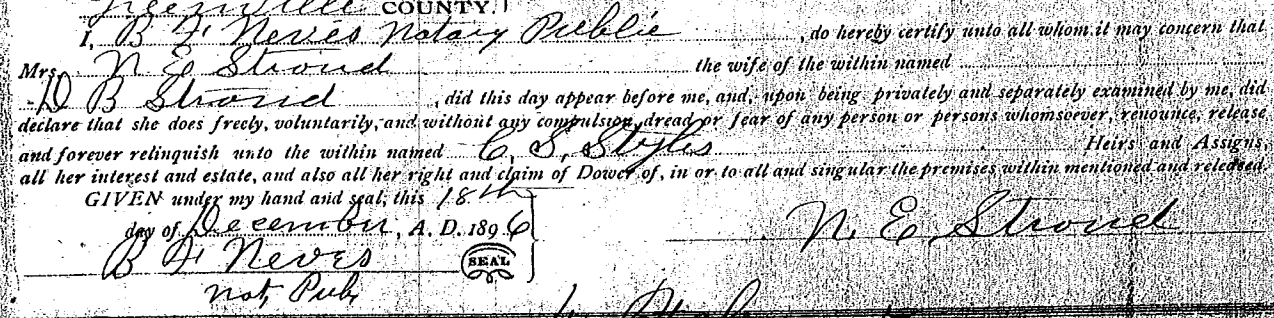 Greenville COUNTY.
I, B F Neves Notary Public , do hereby certify unto all whom it may concern that
Mrs. N. E Stroud the wife of the within named
D B Stroud , did this day appear before me, and, upon being privately and separately examined by me, did
declare that she does freely, voluntarily, and without any compulsion, dread or fear of any person or persons whomsoever, renounce, release
and forever relinquish unto the within named C. S. Styles Heirs and Assigns,
all her interest and estate, and also all her right and claim of Dower of, in or to all and singular the premises within mentioned and released.
GIVEN under my hand and seal, this 18th
day of December, A. D. 1896
N. E. Stroud
B F Neves SEAL
Not Pub